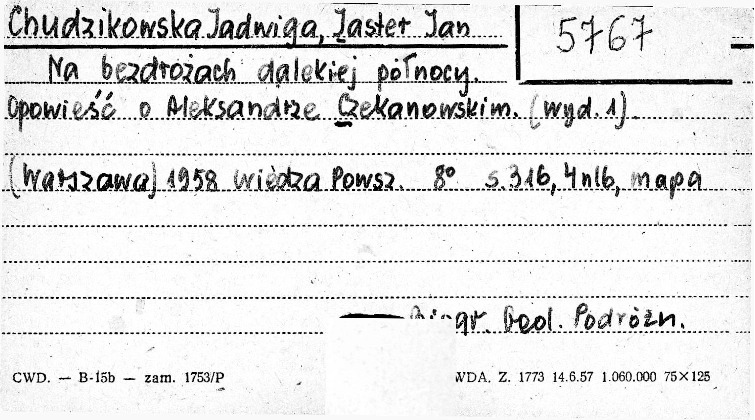 Chudzikowska Jadwiga, Jaster Jan
5767
Na bezdrożach dalekiej północy.
Opowieść o Aleksandrze Czekanowskim. (wyd. 1).
(Warszawa) 1958 wiedza Powsz. 8° s. 316, 4 nlb, mapa
Geol. Podróżn.
CWD. — B-15b — zam. 1753/P WDA. Z. 1773 14.6.57 1.060.000 75×125